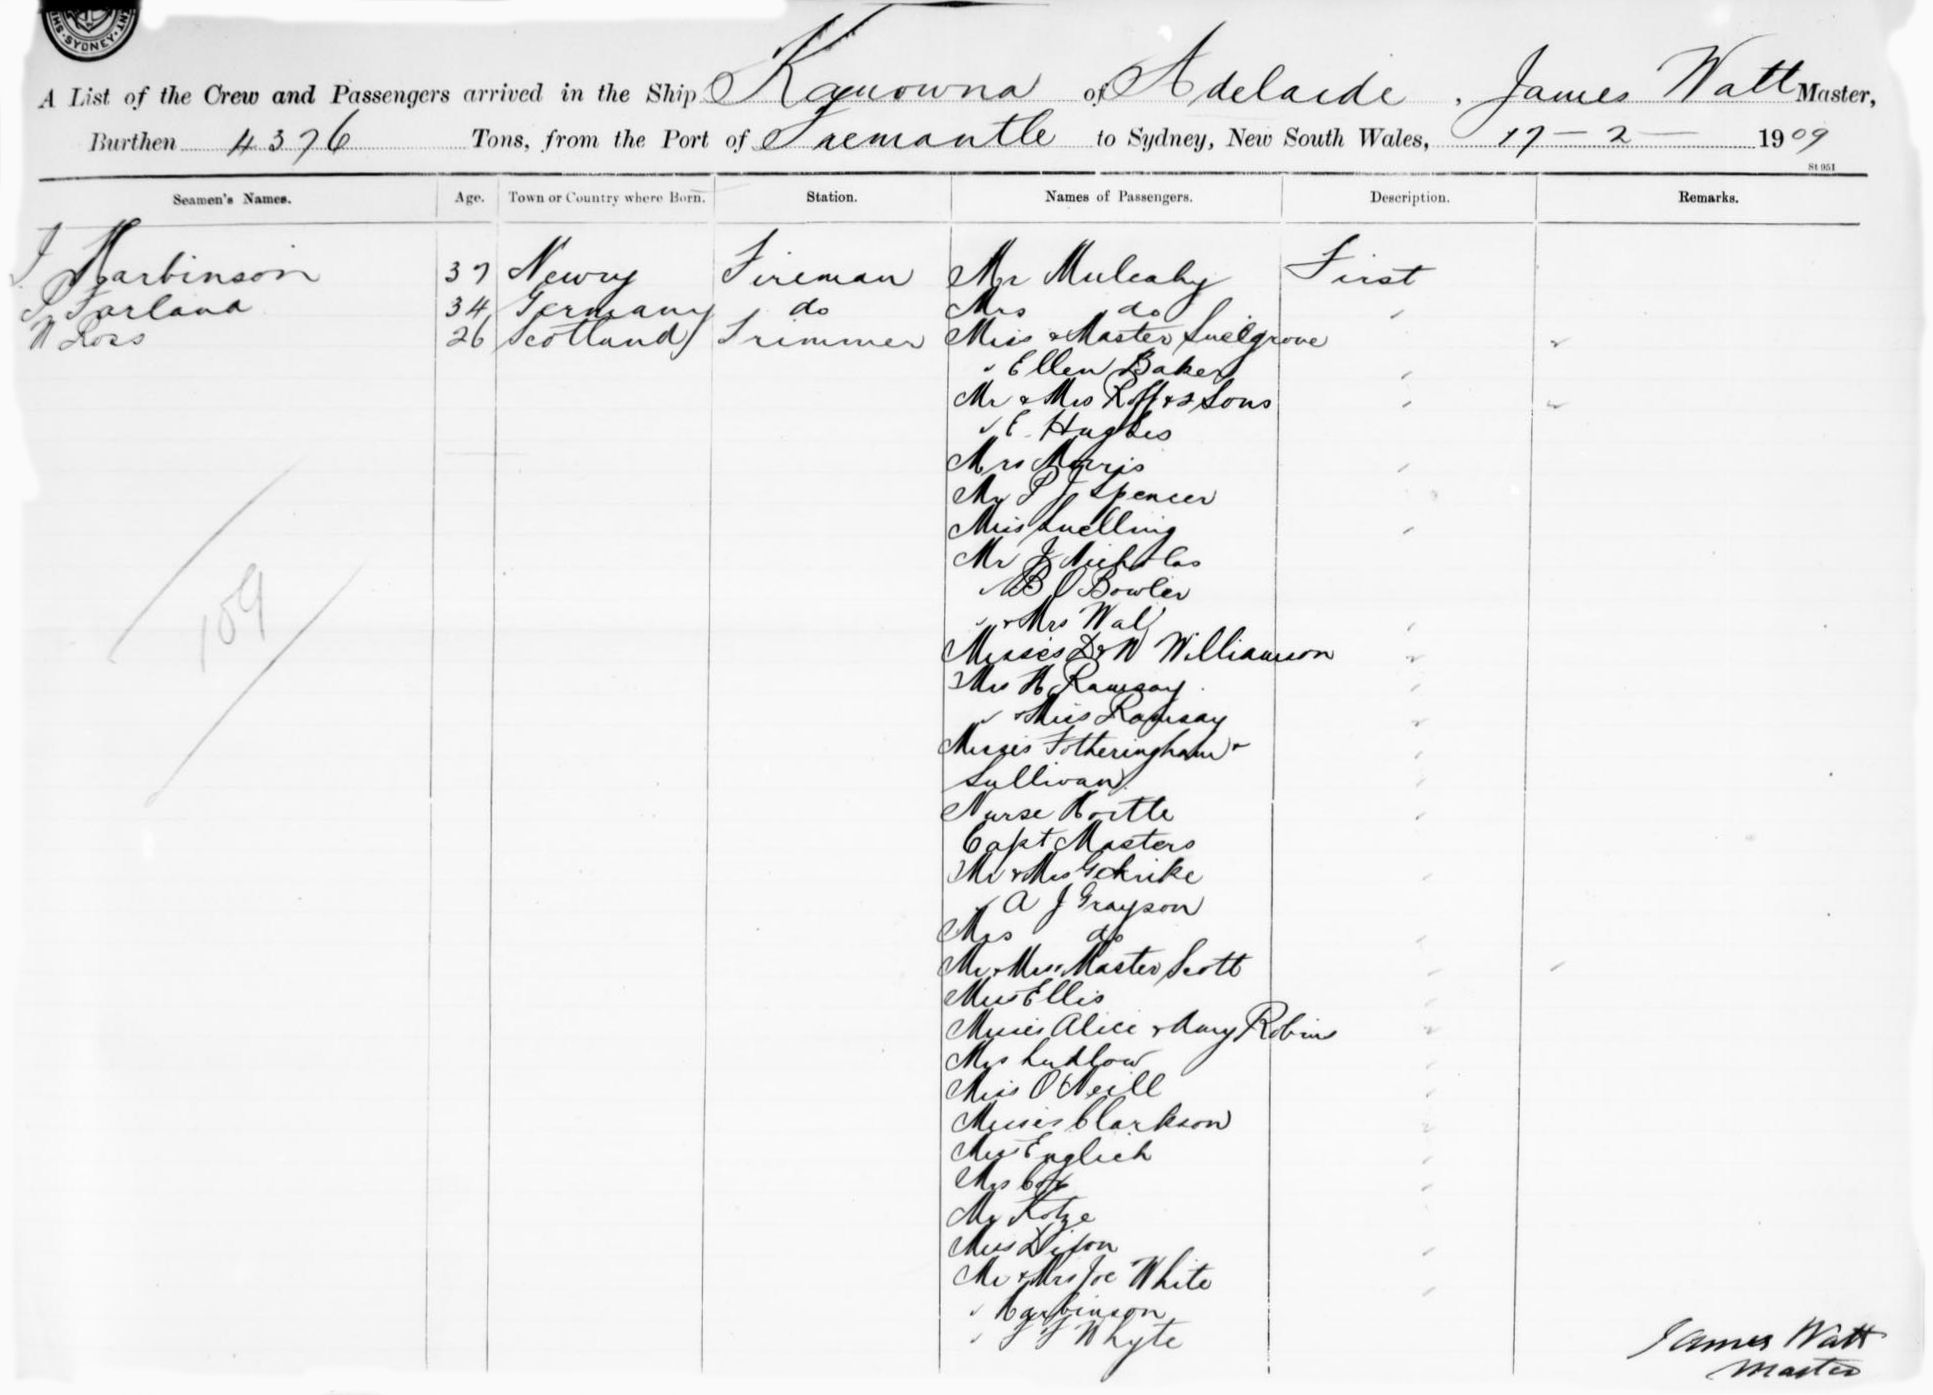 SYDNEY
A List of the Crew and Passengers arrived in the Ship Kanowna of Adelaide, James Watt Master,
Burthen 4376 Tons, from the Port of Fremantle to Sydney, New South Wales, 17-2-1909
St 951
Seamen's Names. Age. Town or Country where Born. Station. Names of Passengers. Description. Remarks.
J Harbinson 37 Newry Fireman Mr Mulcahy First
Farland 34 Germany do Mrs do
W Ross 26 Scotland Trimmer Miss & Master Snelgrove
" Ellen Baker
Mr & Mrs Roff & 2 Sons
" E. Hughes
Mrs Morris
Mr P J Spencer
Miss Snelling
Mr J Nicholas
" B Bowler
" & Mrs Wall
Misses D & W Williamson
Mrs H Ramsay
" & Miss Ramsay
Misses Fotheringham &
Sullivan
Nurse
Capt Masters
Mr & Mrs Gehrike
" A J Grayson
Mrs do
Mr, Mrs & Master Scott
Miss Ellis
Misses Alice & Amy Robins
Mrs Ludlow
Miss O'Neill
Misses Clarkson
Miss English
Mrs Cox
Mr Kotze
Miss Dixon
Mr & Mrs Joe White
" Harbinson
" Whyte
109
James Watt
Master